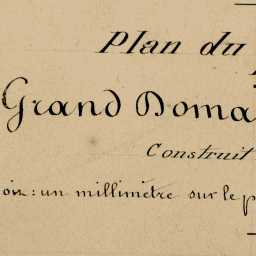 Plan du
Grand Doma
Construit
oix: un millimètre sur le p